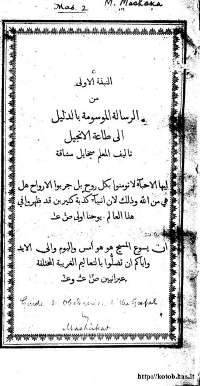 Mas. 2
M. Mashaka
النبذة الاولى
من
الرسالة الموسومة بالدليل
الى طاعة الانجيل
تاليف المعلم ميخايل مشاقة
ايها الاحبآء لا تومنوا بكل روح بل جربوا الارواح هل هي
من الله وذلك لان انبيآء كذبة كثيرين قد ظهروا في
هذا العالم. يوحنا اولى ص ع
ان يسوع المسيح هو هو امس واليوم والى الابد
واياكم ان تضلوا بالتعاليم الغريبة المختلفة
عبرانيين ص ع
Guide to Obedience to the Gospel
by
Mashakat
https://kotob.has.it